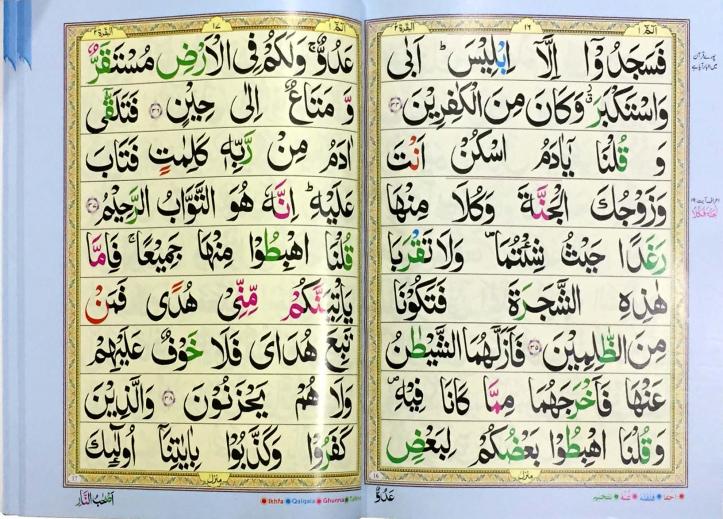 البقرة ٢
١٦
الٓمّٓ ١
فَسَجَدُوْٓا اِلَّاۤ اِبْلِیْسَ ؕ اَبٰی
وَاسْتَكْبَرَ ۗ وَكَانَ مِنَ الْكٰفِرِیْنَ ﴿۳۴﴾
وَ قُلْنَا یٰۤاٰدَمُ اسْكُنْ اَنْتَ
وَزَوْجُكَ الْجَنَّةَ وَكُلَا مِنْهَا
رَغَدًا حَیْثُ شِئْتُمَا ۪ وَلَا تَقْرَبَا
هٰذِهِ الشَّجَرَةَ فَتَكُوْنَا
مِنَ الظّٰلِمِیْنَ ﴿۳۵﴾ فَاَزَلَّهُمَا الشَّیْطٰنُ
عَنْهَا فَاَخْرَجَهُمَا مِمَّا كَانَا فِیْهِ ۪
وَقُلْنَا اهْبِطُوْا بَعْضُكُمْ لِبَعْضٍ
16
منزل ۱
عَدُوٌّ
اخفا قلقلہ غنہ تفخیم
البقرة ٢
١٧
الٓمّٓ ١
عَدُوٌّ ۚ وَلَكُمْ فِی الْاَرْضِ مُسْتَقَرٌّ
وَّ مَتَاعٌ اِلٰی حِیْنٍ ﴿۳۶﴾ فَتَلَقّٰۤی
اٰدَمُ مِنْ رَّبِّهٖ كَلِمٰتٍ فَتَابَ
عَلَیْهِ ؕ اِنَّهٗ هُوَ التَّوَّابُ الرَّحِیْمُ ﴿۳۷﴾
قُلْنَا اهْبِطُوْا مِنْهَا جَمِیْعًا ۚ فَاِمَّا
یَاْتِیَنَّكُمْ مِّنِّیْ هُدًی فَمَنْ
تَبِعَ هُدَایَ فَلَا خَوْفٌ عَلَیْهِمْ
وَلَا هُمْ یَحْزَنُوْنَ ﴿۳۸﴾ وَالَّذِیْنَ
كَفَرُوْا وَكَذَّبُوْا بِاٰیٰتِنَاۤ اُولٰٓىِٕكَ
17
منزل ۱
اَصْحٰبُ النَّارِ
Ikhfa Qalqala Ghunna